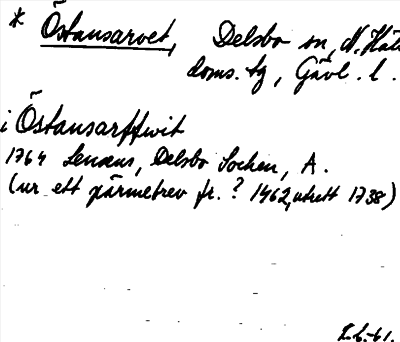 * Östansarvet, Delsbo sn, N. Häls
doms. tg, Gävl. l.
i Östansarffwit
1764 Lenæus, Delsbo Socken, A.
(ur ett pärmebrev fr. ? 1462, utsatt 1738)